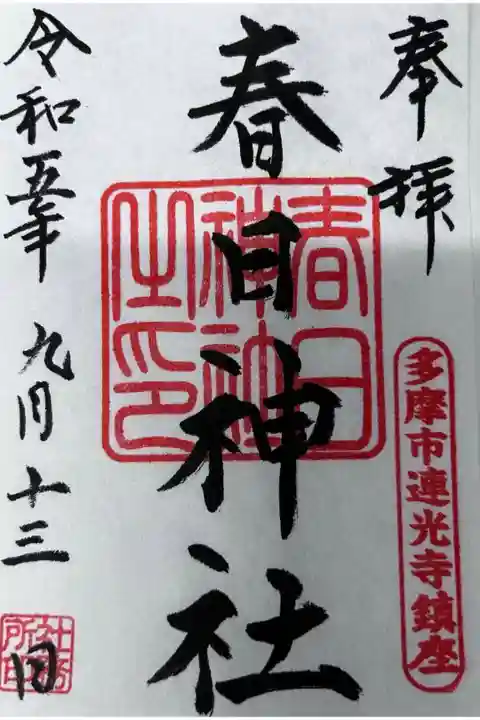 奉拝
多摩市連光寺鎮座
春日神社
春日
神社
之印
令和五年 九月 十三日
社務
所印